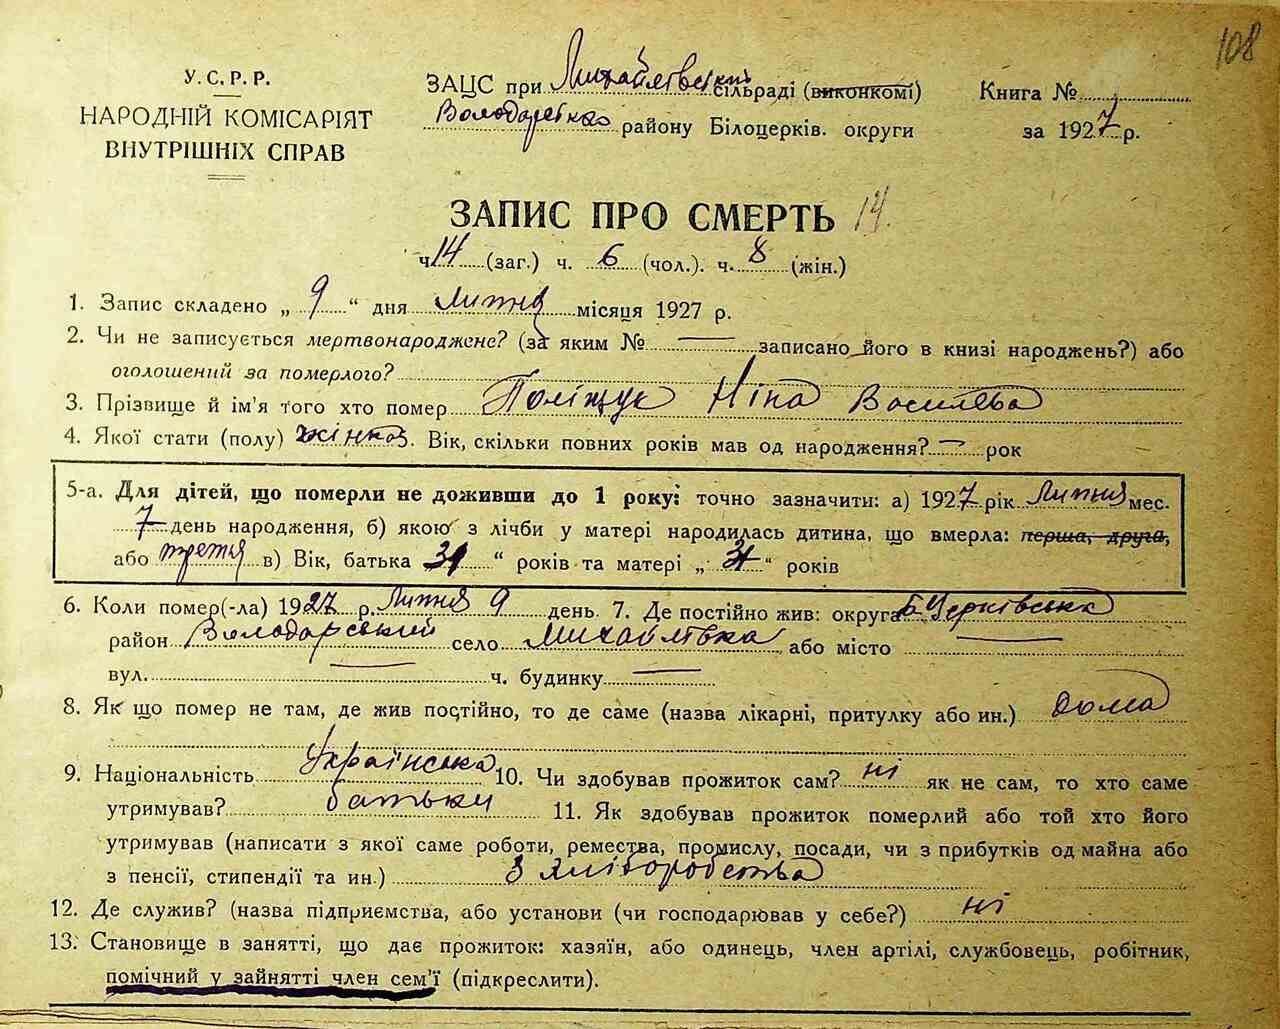 108
У.С.Р.Р.
НАРОДНІЙ КОМІСАРІЯТ
ВНУТРІШНІХ СПРАВ
ЗАЦС при Михайлівській сільраді (виконкомі)
Володарського району Білоцерків. округи
Книга №
за 1927 р.
ЗАПИС ПРО СМЕРТЬ 14
ч. 14 (заг.) ч. 6 (чол.). ч. 8 (жін.)
1. Запис складено „ 9 “ дня Липня місяця 1927 р.
2. Чи не записується мертвонароджене? (за яким № — записано його в книзі народжень?) або
оголошений за померлого?
3. Прізвище й ім'я того хто помер Поліщук Ніна Василева
4. Якої стати (полу) жінка. Вік, скільки повних років мав од народження? — рок
5-а. Для дітей, що померли не доживши до 1 року: точно зазначити: а) 1927 рік Липня мес.
7 день народження, б) якою з лічби у матері народилась дитина, що вмерла: перша, друга,
або третя в) Вік, батька 31 “ років та матері „ 31 “ років
6. Коли помер(-ла) 1927 р. Липня 9 день. 7. Де постійно жив: округа Б.Церківська
район Володарський село Михайлівка або місто —
вул. — ч. будинку —
8. Як що помер не там, де жив постійно, то де саме (назва лікарні, притулку або ин.) дома
9. Національність Українська 10. Чи здобував прожиток сам? ні як не сам, то хто саме
утримував? батьки 11. Як здобував прожиток померлий або той хто його
утримував (написати з якої саме роботи, ремества, промислу, посади, чи з прибутків од майна або
з пенсії, стипендії та ин.) З хліборобства
12. Де служив? (назва підприємства, або установи (чи господарював у себе?) ні
13. Становище в занятті, що дає прожиток: хазяїн, або одинець, член артілі, службовець, робітник,
помічний у зайнятті член сем'ї (підкреслити).